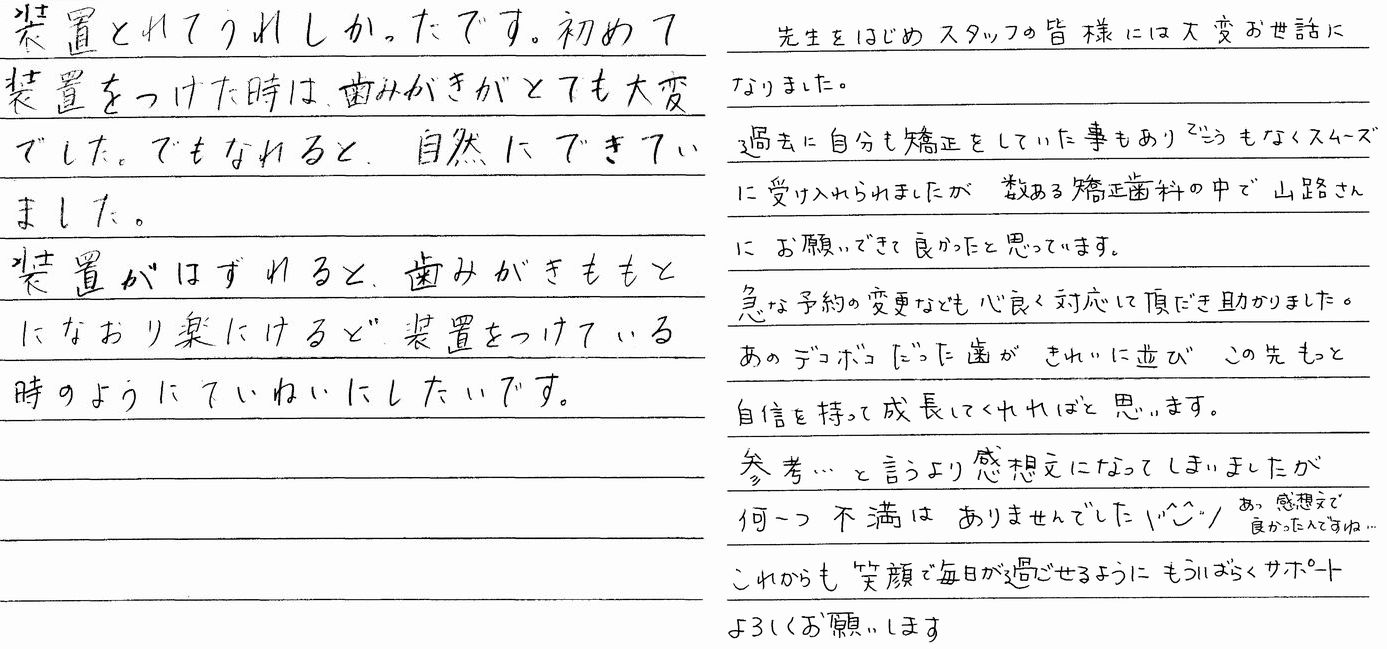 装置とれてうれしかったです。初めて
装置をつけた時は、歯みがきがとても大変
でした。でもなれると、自然にできてい
ました。
装置がはずれると、歯みがきももと
になおり楽にけるど、装置をつけている
時のようにていねいにしたいです。
先生をはじめ スタッフの皆様には大変お世話に
なりました。
過去に自分も矯正をしていた事もあり ていこうもなくスムーズ
に受け入れられましたが 数ある矯正歯科の中で 山路さん
に お願いできて良かったと思っています。
急な予約の変更なども 心良く対応して頂だき助かりました。
あの デコボコ だった歯が きれいに並び この先 もっと
自信を持って成長してくれればと思います。
参考… と言うより感想文になってしまいましたが
何一つ 不満は ありませんでした \(^‿^)/ あっ 感想文で
良かったんですね…
これからも 笑顔で毎日が過ごせるように もうしばらくサポート
よろしくお願いします